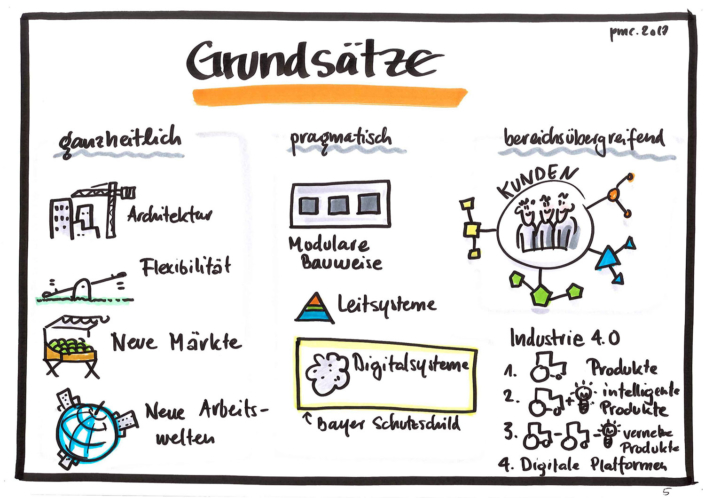 pmc. 2017
Grundsätze
ganzheitlich
Architektur
Flexibilität
Neue Märkte
Neue Arbeits-
welten
pragmatisch
Modulare
Bauweise
Leitsysteme
Digitalsysteme
↑ Bayer Schutzschild
bereichsübergreifend
KUNDEN
Industrie 4.0
1. Produkte
2. + intelligente
Produkte
3. - - vernetzte
Produkte
4. Digitale Plattformen
5